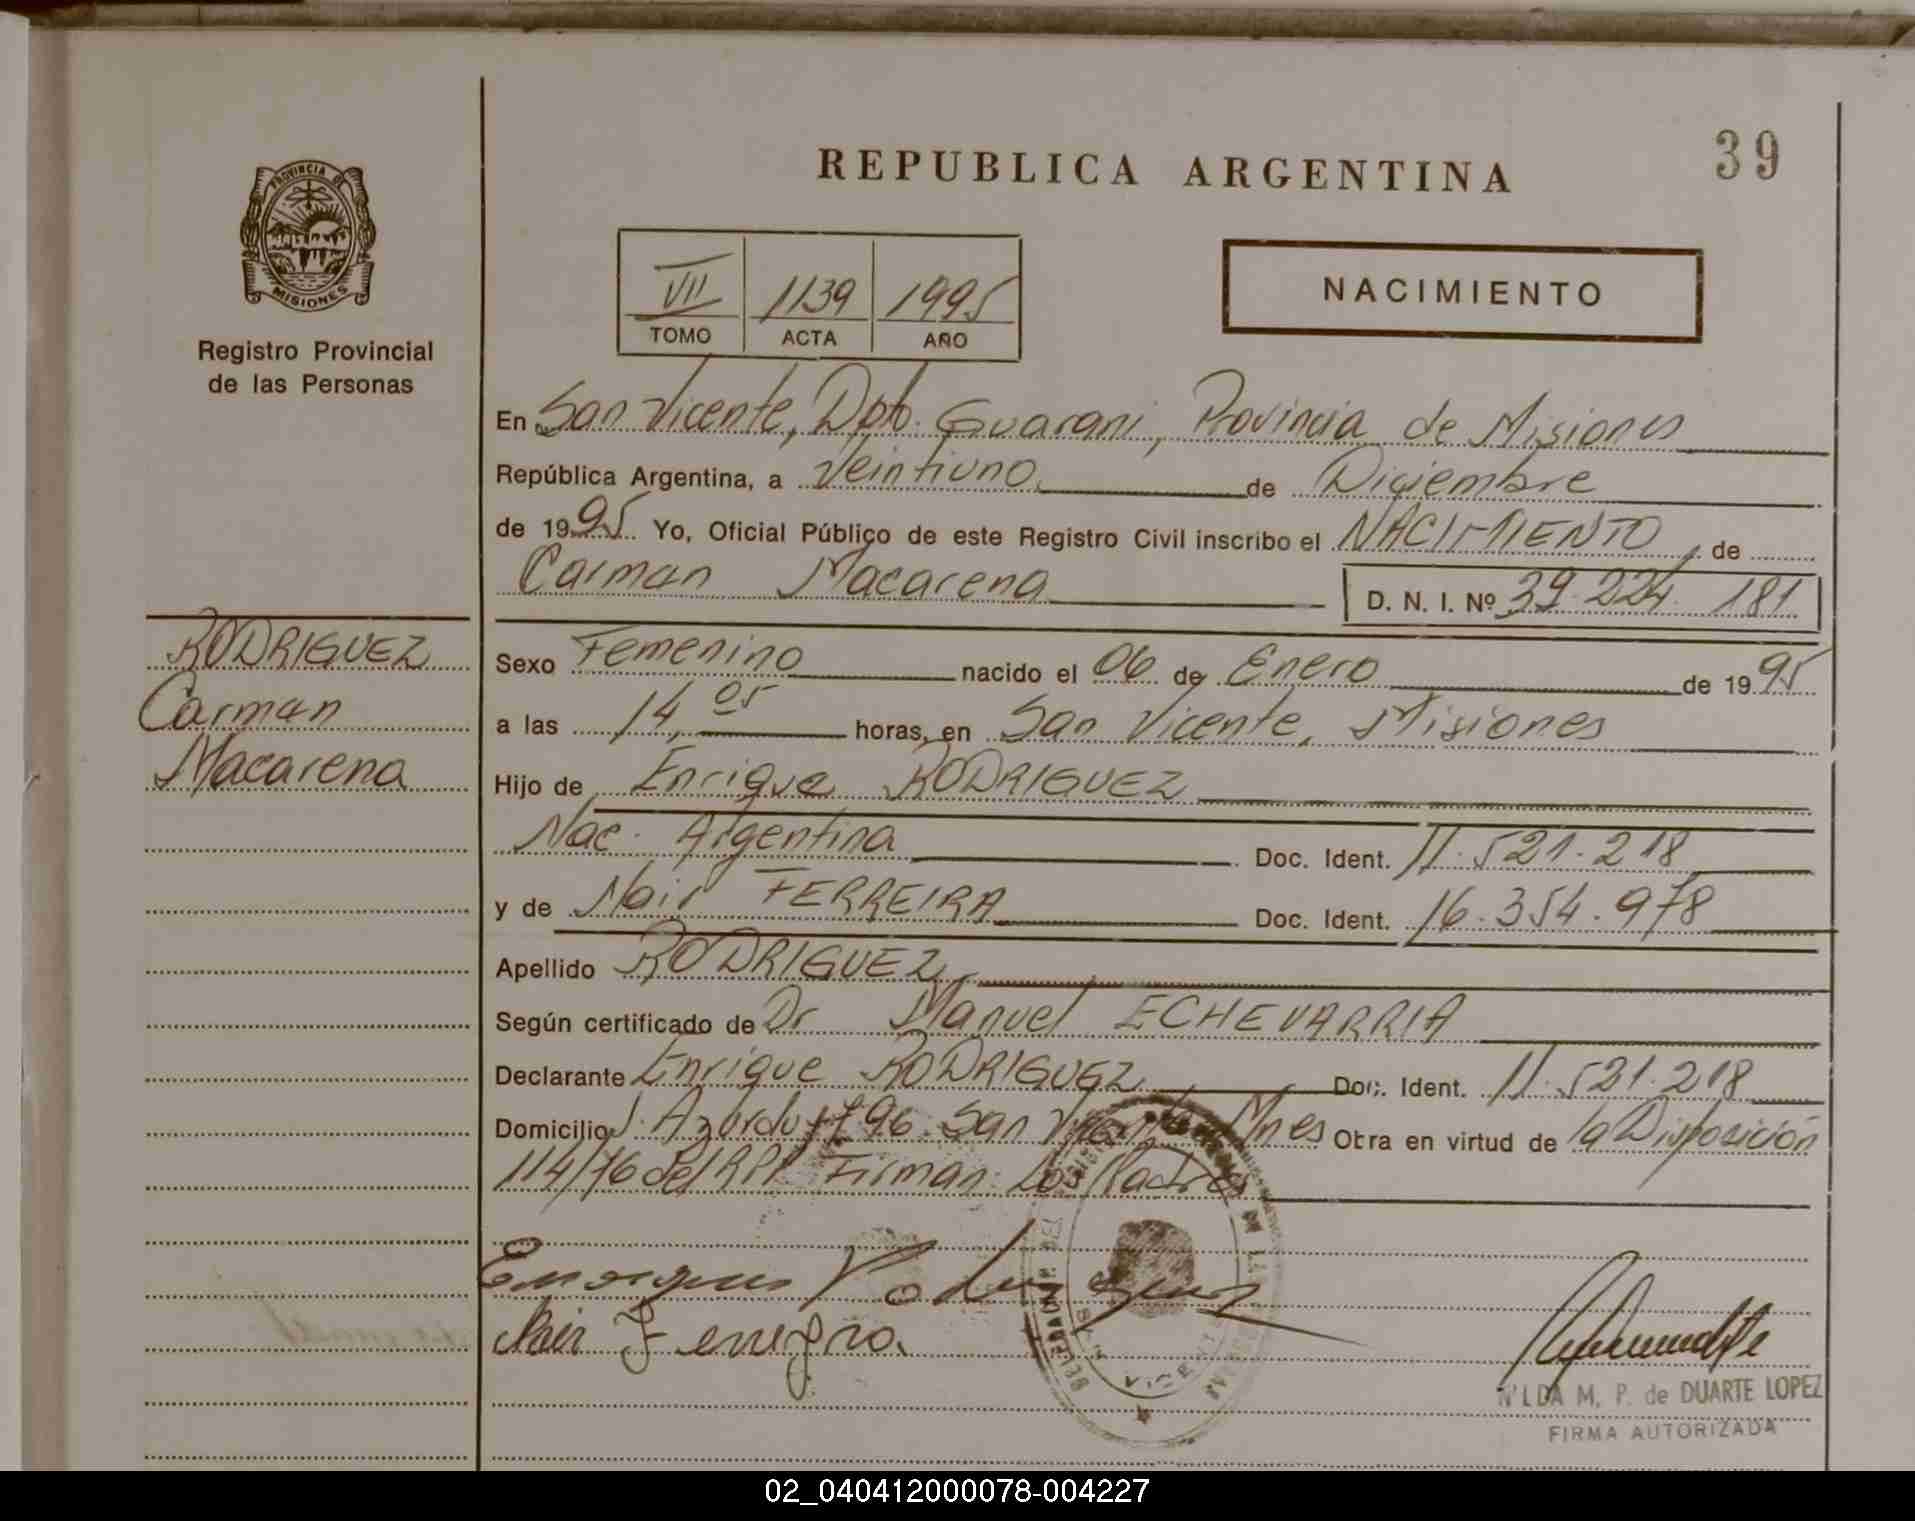 39
REPUBLICA ARGENTINA
PROVINCIA DE
MISIONES
Registro Provincial
de las Personas
VII 1139 1995
TOMO ACTA AÑO
NACIMIENTO
En San Vicente, Dpto. Guarani, Provincia de Misiones
República Argentina, a Veintiuno de Diciembre
de 1995 Yo, Oficial Público de este Registro Civil inscribo el NACIMIENTO, de
Carman Macarena D. N. I. Nº 39.224.181
RODRIGUEZ
Carman
Macarena
Sexo Femenino nacido el 06 de Enero de 1995
a las 14,05 horas, en San Vicente, Misiones
Hijo de Enrique RODRIGUEZ
Nac. Argentina Doc. Ident. 11.521.218
y de Nair FERREIRA Doc. Ident. 16.354.978
Apellido RODRIGUEZ
Según certificado de Dr Manuel ECHEVARRIA
Declarante Enrique RODRIGUEZ Doc. Ident. 11.521.218
Domicilio J. Azurduy 796. San Vicente Mnes Obra en virtud de la Disposición
114/76 del RPP Firman: Los Padres
VICENTE
N'LDA M. P. de DUARTE LOPEZ
FIRMA AUTORIZADA
02_040412000078-004227